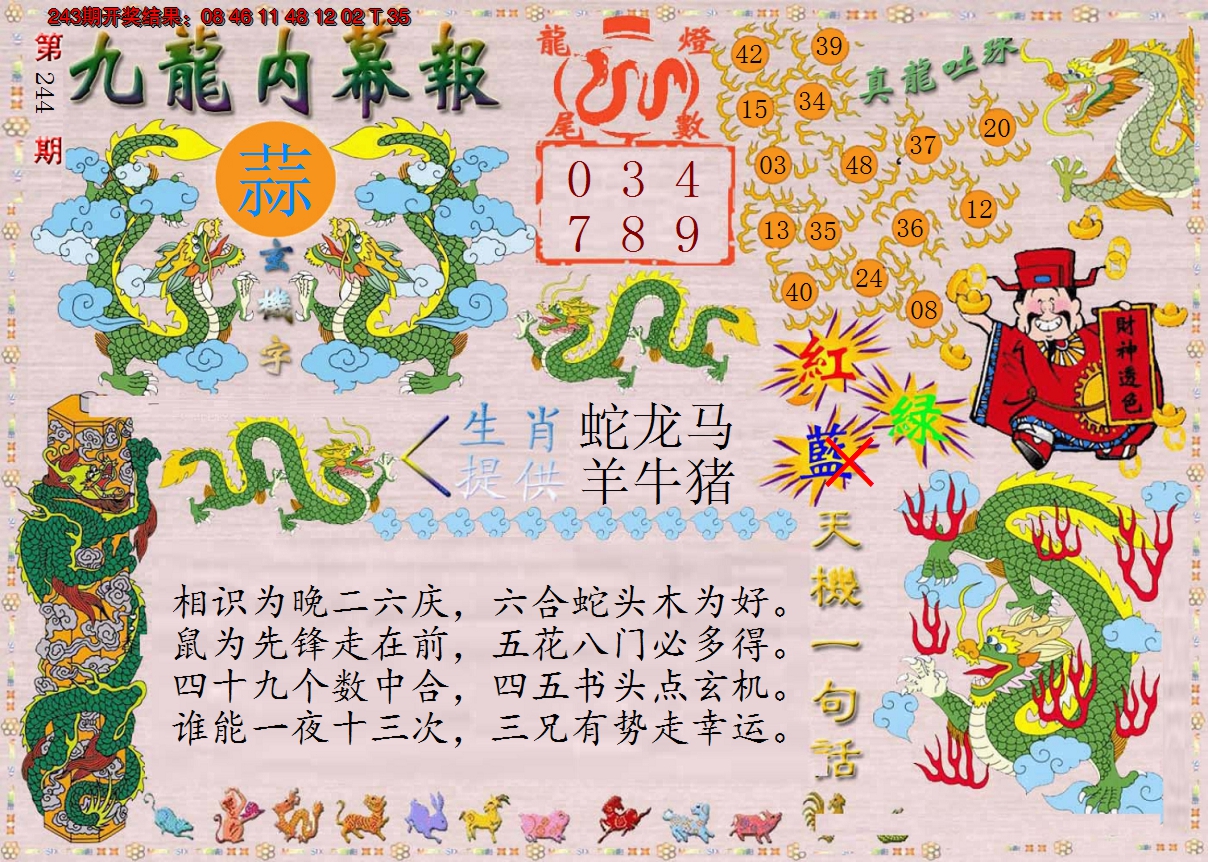 243期开奖结果：06 46 11 48 12 02 T 35
第244期
九龍内幕報
蒜
玄機字
龍燈尾數
0 3 4
7 8 9
真龍吐珠
42 39
15 34
03 48 37 20
13 35 36 12
40 24 08
財神透色
紅
绿
藍
生肖提供
蛇龙马
羊牛猪
天機一句话
相识为晚二六庆，六合蛇头木为好。
鼠为先锋走在前，五花八门必多得。
四十九个数中合，四五书头点玄机。
谁能一夜十三次，三兄有势走幸运。